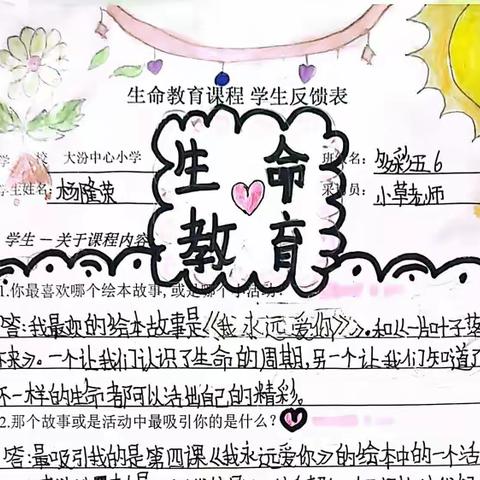 生命教育课程 学生反馈表
生命
教育
学 校 大汾中心小学
班 名: 多彩五6
学生姓名: 杨隆荣
采 员: 小草老师
学生－关于课程内容
1.你最喜欢哪个绘本故事,或是哪个 活动?
答:我最欢的绘本故事是《我永远爱你》。和《一片叶子落
下来》。一个让我们认识了生命的周期,另一个让我们知道了
不一样的生命都可以活出自己的精彩。
2.那个故事或是活动中最吸引你的是什么?
答:最吸引我的是第四课《我永远爱你》的绘本中的一个活